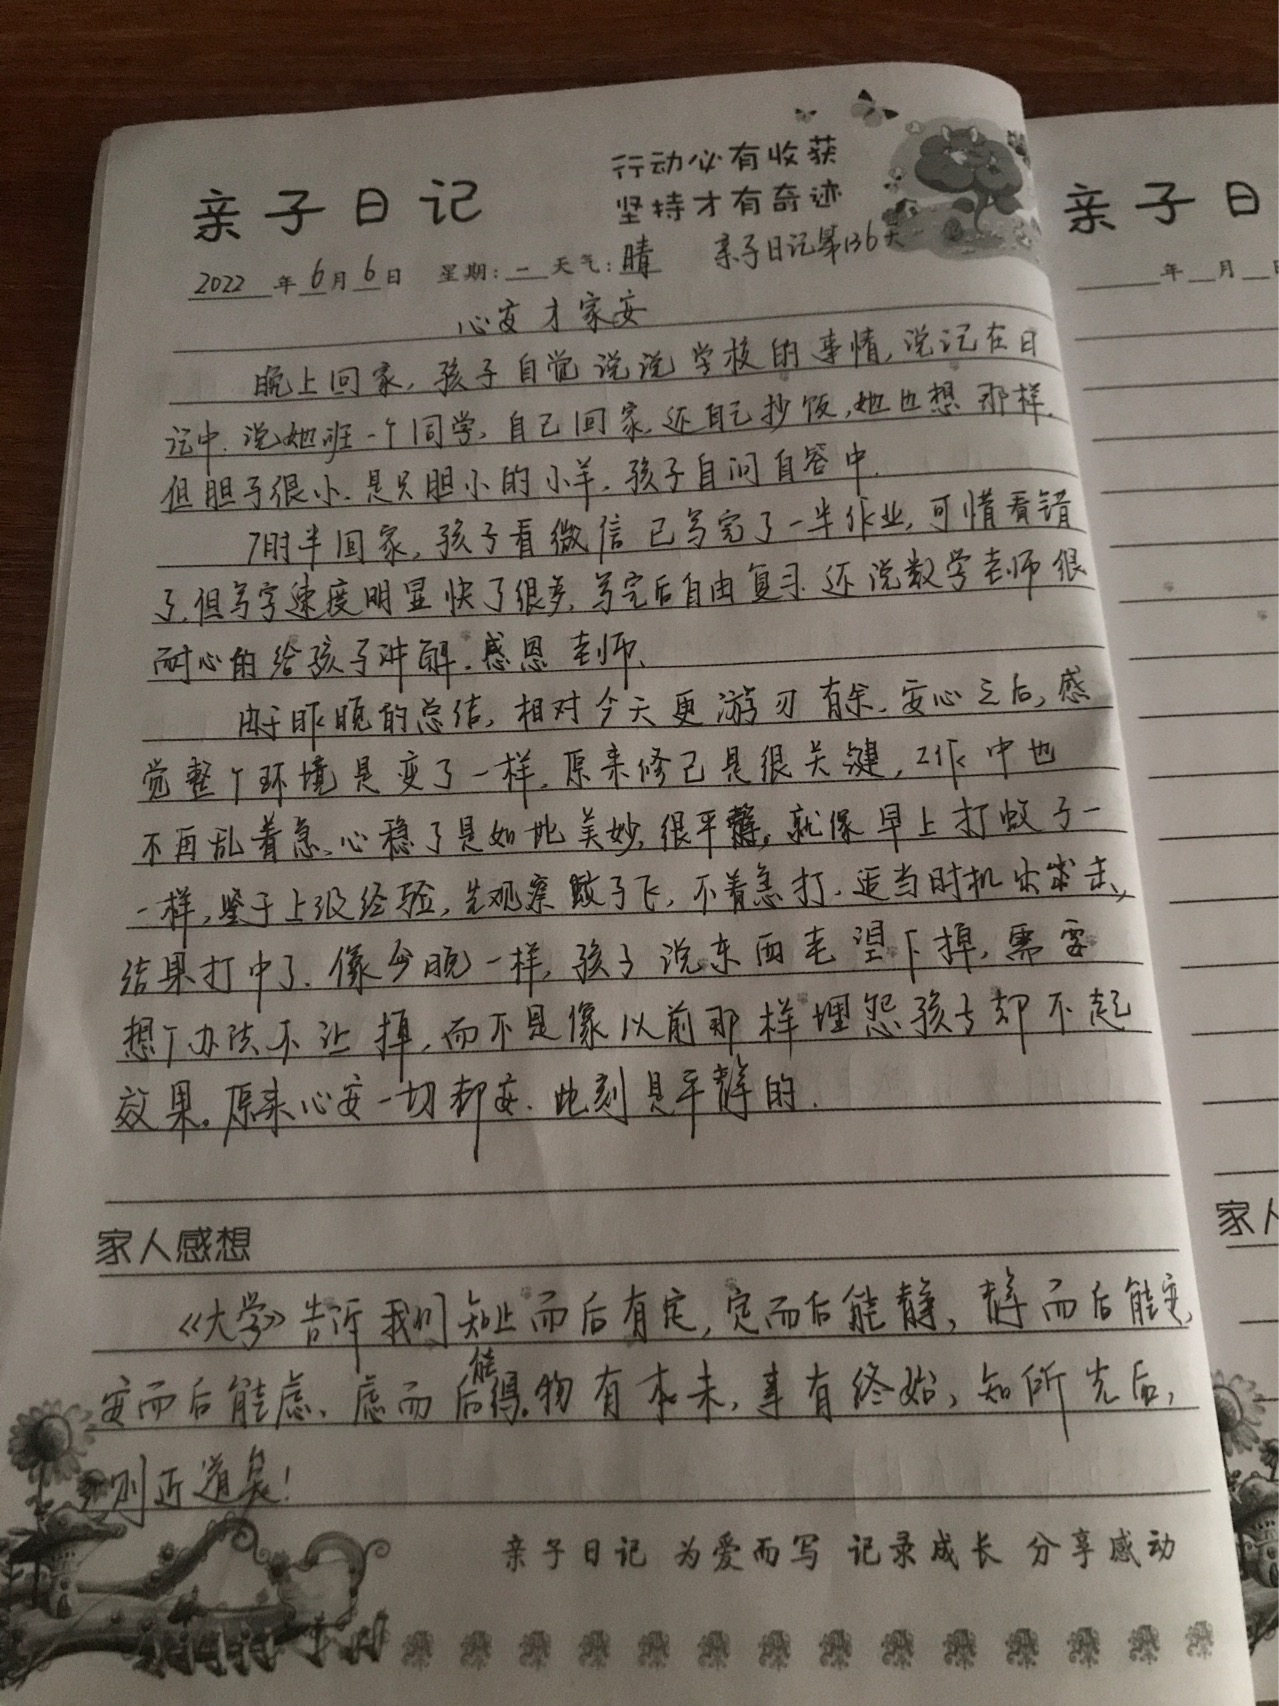 行动必有收获
亲子日记 坚持才有奇迹
亲子日记第136天
2022年6月6日 星期:一 天气:晴
心安才家安
晚上回家,孩子自觉说说学校的事情,说记在日
记中.说她班一个同学,自己回家,还自己炒饭,她也想那样,
但胆子很小.是只胆小的小羊.孩子自问自答中.
7时半回家,孩子看微信已写完了一半作业,可惜看错
了,但写字速度明显快了很多,写完后自由复习.还说数学老师很
耐心的给孩子讲解.感恩老师.
由于昨晚的总结,相对今天更游刃有余.安心之后,感
觉整个环境是变了一样.原来修己是很关键,工作中也
不再乱着急.心稳了是如此美妙,很平静,就像早上打蚊子一
一样,鉴于上级经验,先观察蚊子飞,不着急打.适当时机出击,
结果打中了.像今晚一样,孩子说东西老望下掉,需要
想个办法不让掉,而不是像以前那样埋怨孩子却不起
效果。原来心安一切都安.此刻是平静的.
家人感想
《大学》告诉我们知止而后有定,定而后能静,静而后能安,
安而后能虑、虑而后能得。物有本末,事有终始,知所先后,
则近道矣!
亲子日记 为爱而写 记录成长 分享感动
亲子日
年 月 日
家人